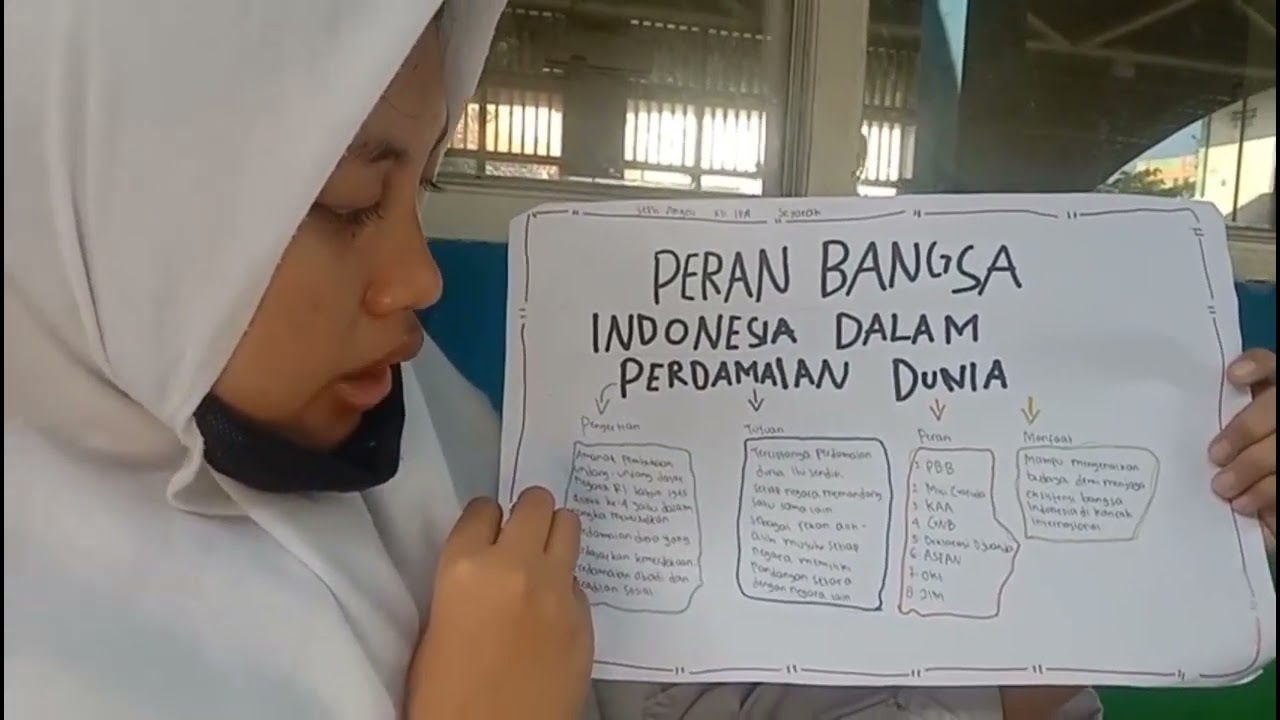 XII IPA Sejarah
PERAN BANGSA
INDONESIA DALAM
PERDAMAIAN DUNIA
Pengertian
Amanat pembukaan
undang-undang dasar
Negara RI tahun 1945
ke-4 yaitu dalam
perdamaian dunia yang
kemerdekaan
perdamaian abadi dan
keadilan sosial
Tujuan
Terciptanya perdamaian
dunia itu sendiri
setiap negara memandang
satu sama lain
sebagai rekan alih-
alih musuh setiap
negara memiliki
pandangan setara
dengan negara lain
Peran
1. PBB
2. Misi Garuda
3. KAA
4. GNB
5. Deklarasi Djuanda
6. ASEAN
7. OKI
8. JIM
Manfaat
Mampu mengenalkan
budaya demi menjaga
eksistensi bangsa
Indonesia di kancah
Internasional